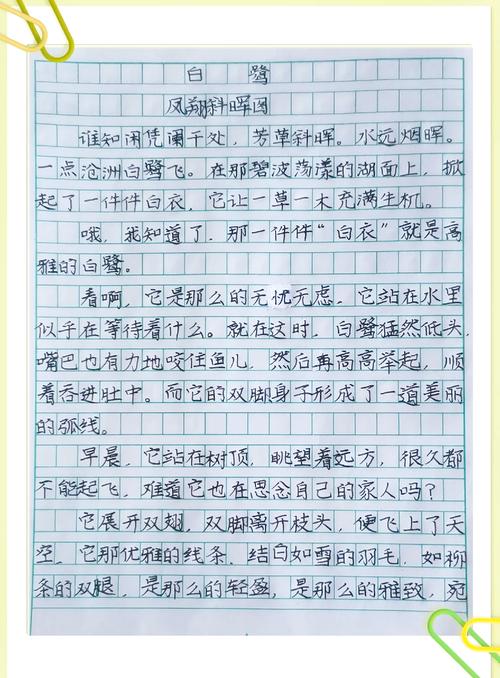 白鹭
风翔斜晖图
谁知闲凭阑干处，芳草斜晖。水远烟晖。
一点沧洲白鹭飞。在那碧波荡漾的湖面上，掀
起了一件件白衣，它让一草一木充满生机。
哦，我知道了，那一件件“白衣”就是高
雅的白鹭。
看啊，它是那么的无忧无虑，它站在水里
似乎在等待着什么。就在这时，白鹭猛然低头，
嘴巴也有力地咬住鱼儿，然后再高高举起，顺
着吞进肚中。而它的双脚身子形成了一道美丽
的弧线。
早晨，它站在树顶，眺望着远方，很久都
不能起飞，难道它也在思念自己的家人吗？
它展开双翅，双脚离开枝头，便飞上了天
空，它那优雅的线条，结白如雪的羽毛，如柳
条的双腿，是那么的轻盈，是那么的雅致，宛